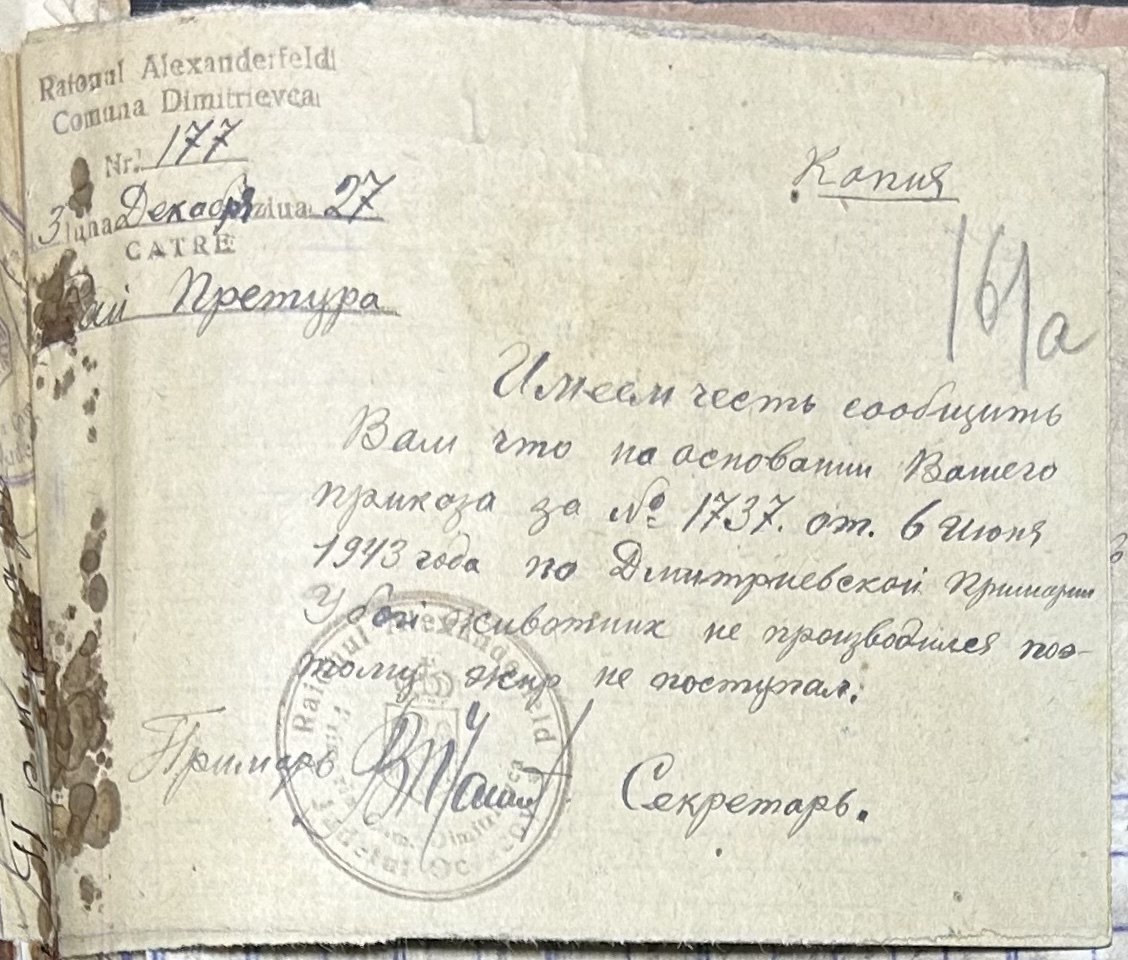 Raionul Alexanderfeld
Comuna Dimitrievca
Nr. 177
luna Декабря ziua 27
CATRE
Рай Претура
Копия
161а
Имеем честь сообщить
Вам что на основании Вашего
приказа за № 1737. от. 6 Июня
1943 года по Дмитриевской Примарии
Убой животних не производился поэ-
тому жир не поступал.
Raionul Alexanderfeld
Примарь
Секретарь.